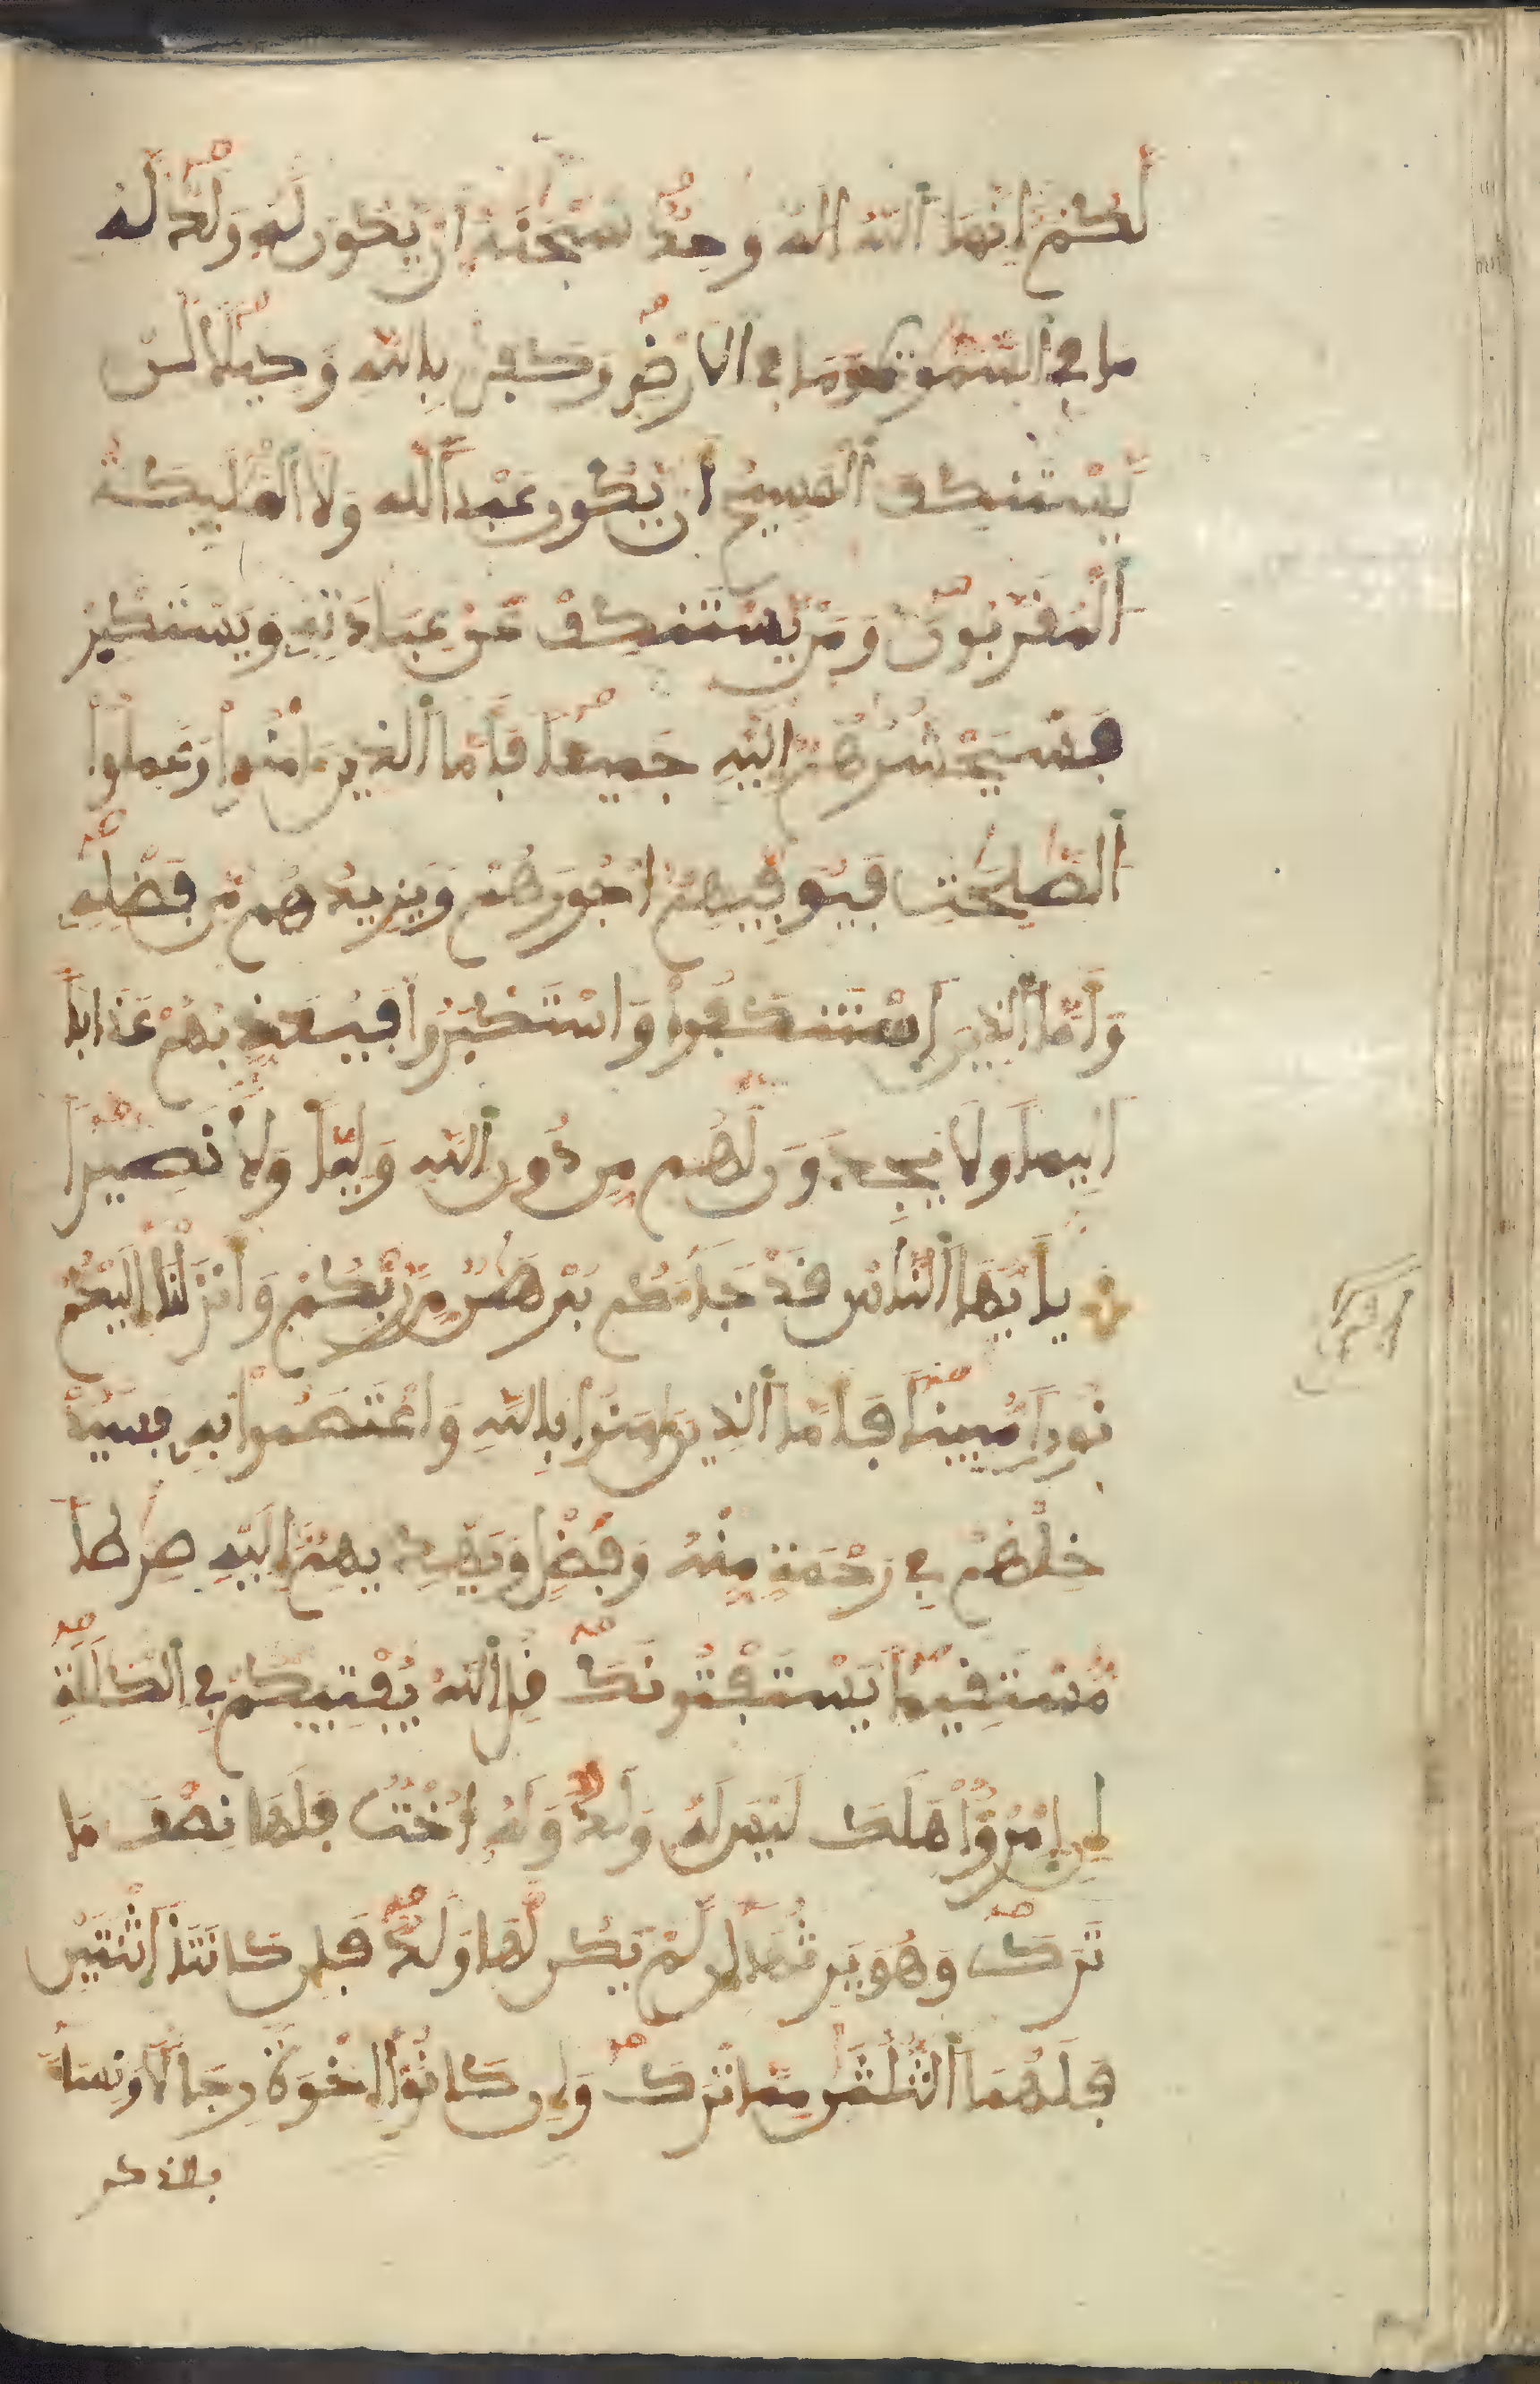 لَّكُمْ إِنَّمَا ٱللَّهُ إِلَٰهٌ وَٰحِدٌ سُبْحَٰنَهُ أَنْ يَّكُونَ لَهُ وَلَدٌ لَّهُ
مَا فِي ٱلسَّمَٰوَٰتِ وَمَا فِي ٱلْأَرْضِ وَكَفَىٰ بِاللَّهِ وَكِيلًا لَّن
يَّسْتَنكِفَ ٱلْمَسِيحُ أَنْ يَّكُونَ عَبْدًا لِّلَّهِ وَلَا ٱلْمَلَٰٓئِكَةُ
ٱلْمُقَرَّبُونَ وَمَنْ يَّسْتَنكِفْ عَنْ عِبَادَتِهِ وَيَسْتَكْبِرْ
فَسَيَحْشُرُهُمْ إِلَيْهِ جَمِيعًا فَأَمَّا ٱلذِينَ ءَامَنُوا وَعَمِلُوا
ٱلصَّٰلِحَٰتِ فَيُوَفِّيهِمْ أُجُورَهُمْ وَيَزِيدُهُم مِّن فَضْلِهِ
وَأَمَّا ٱلذِينَ ٱسْتَنكَفُوا وَاسْتَكْبَرُوا فَيُعَذِّبُهُمْ عَذَابًا
أَلِيمًا وَلَا يَجِدُونَ لَهُم مِّن دُونِ ٱللَّهِ وَلِيًّا وَلَا نَصِيرًا
يَٰأَيُّهَا ٱلنَّاسُ قَدْ جَآءَكُم بُرْهَٰنٌ مِّن رَّبِّكُمْ وَأَنزَلْنَا إِلَيْكُمْ
نُورًا مُّبِينًا فَأَمَّا ٱلذِينَ ءَامَنُوا بِاللَّهِ وَاعْتَصَمُوا بِهِ فَسَيُدْ
خِلُهُمْ فِي رَحْمَةٍ مِّنْهُ وَفَضْلٍ وَيَهْدِيهِمْ إِلَيْهِ صِرَٰطًا
مُّسْتَقِيمًا يَسْتَفْتُونَكَ قُلِ ٱللَّهُ يُفْتِيكُمْ فِي ٱلْكَلَٰلَةِ
إِنِ ٱمْرُؤٌا هَلَكَ لَيْسَ لَهُ وَلَدٌ وَلَهُ أُخْتٌ فَلَهَا نِصْفُ مَا
تَرَكَ وَهُوَ يَرِثُهَا إِن لَّمْ يَكُن لَّهَا وَلَدٌ فَإِن كَانَتَا ٱثْنَتَيْنِ
فَلَهُمَا ٱلثُّلُثَٰنِ مِمَّا تَرَكَ وَإِن كَانُوا إِخْوَةً رِّجَالًا وَنِسَآءً
فللذكر